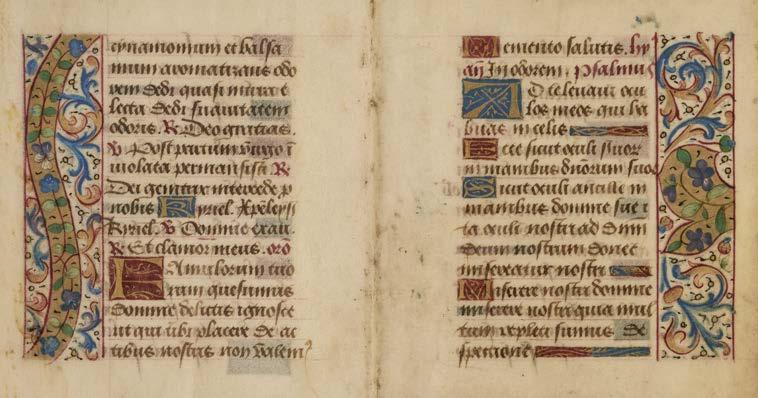 cynamomum et balsa
mum aromatizans odo
rem dedi quasi mirra e
lecta dedi suavitatem
odoris. R Deo gratias.
V Post partum virgo i
violata permansisti R
Dei genitrix intercede p
nobis Kyriel. Xpeleys
Kyriel. V Domine exau.
R Et clamor meus. oro
Famulorum tuo
rum quesumus
Domine delictis ignosce
ut qui tibi placere de ac
tibus nostris non valem9
Memento salutis. hy
an In odorem. psalmus
Ad te levavi ocu
los meos qui ha
bitas in celis
Ecce sicut oculi servor
in manibus dnorum suo
Sicut oculi ancille in
manibus domine sue i
ta oculi nostri ad dnm
deum nostrum donec
misereatur nostri
Miserere nostri domine
miserere nostri quia mul
tum repleti sumus de
spectione